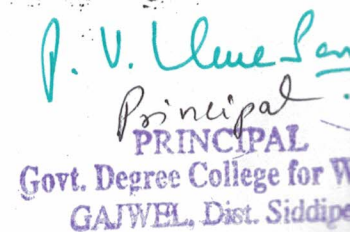 P. V.
Principal
PRINCIPAL
Govt. Degree College for W
GAJWEL, Dist. Siddipe